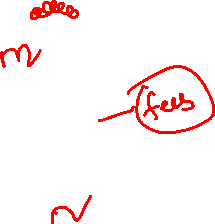 m
fees
n